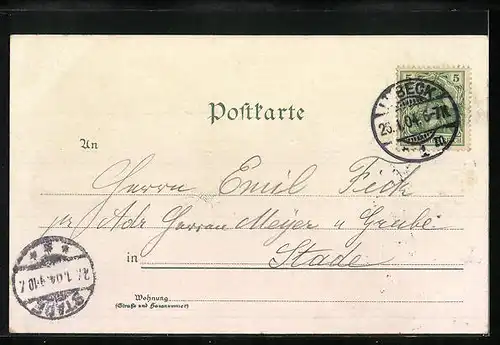 5 5
LÜBECK
25.1.04.6-7N.
1 m
Postkarte
An
Herrn Emil Fick
pr Adr Herren Meyer u Grube
in Stade
STADE
27.1.04.
Wohnung
(Straße und Hausnummer)